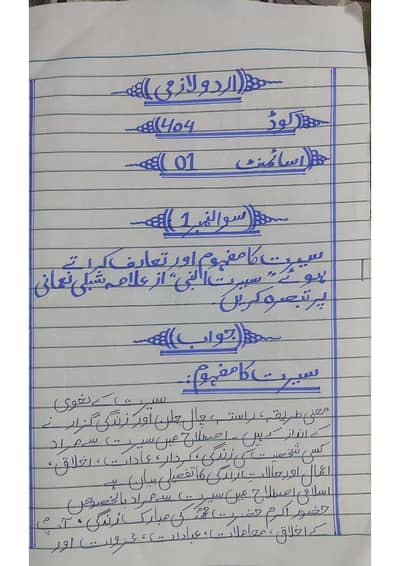 اردو لازمی
کوڈ 404
اسائمنٹ 01
سوالنمبر 1
سیرت کا مفہوم اور تعارف کراتے
ہوئے "سیرت النبی" از علامہ شبلی نعمانی
پر تبصرہ کریں۔
جواب
سیرت کا مفہوم:۔
سیرت کے لغوی
معنی طریقہ، راستہ، چال چلن اور زندگی گزارنے
کے انداز کے ہیں۔ اصطلاح میں سیرت سے مراد
کسی شخصیت کی زندگی، کردار، عادات، اخلاق،
اعمال اور حالات زندگی کا تفصیلی بیان ہے
اسلامی اصطلاح میں سیرت سے مراد بالخصوص
حضور اکرم حضرت محمدؐ کی مبارک زندگی، آپؐ
کے اخلاق، معاملات، عبادات، غزوات اور